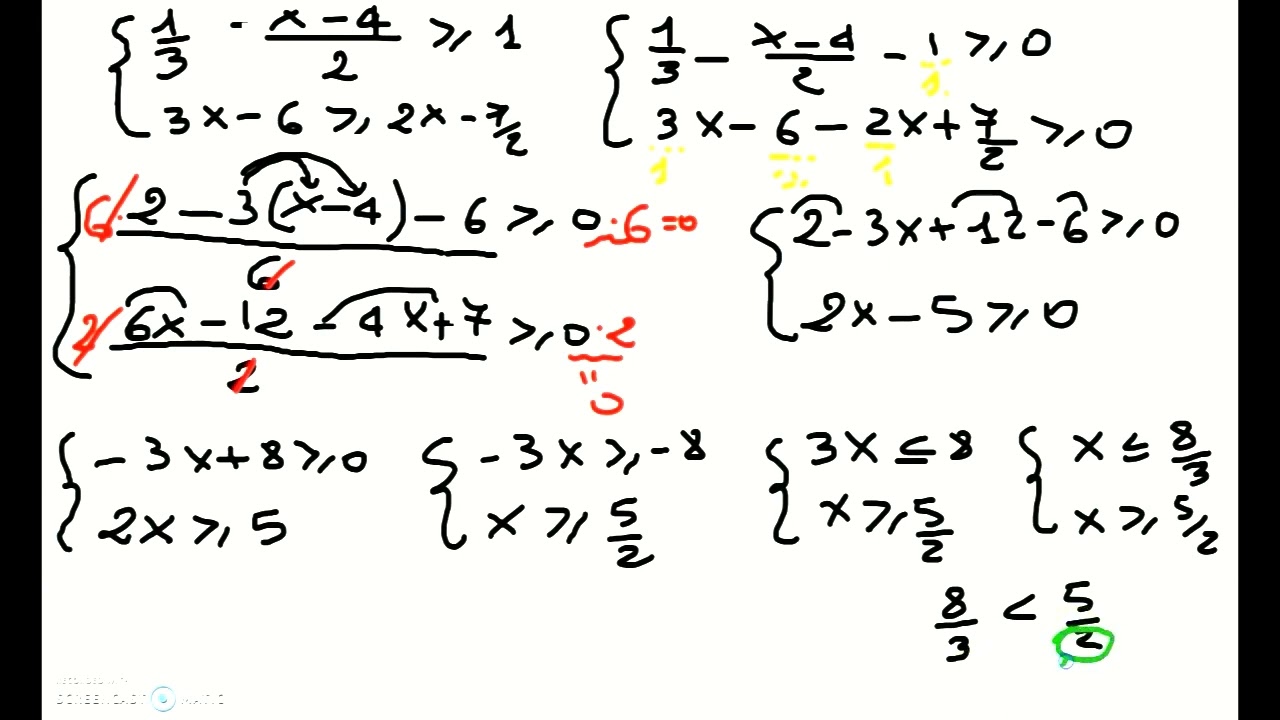 { 1/3 - (x-4)/2 ⩾ 1
3x - 6 ⩾ 2x - 7/2
{ 1/3 - (x-4)/2 - 1/1 ⩾ 0
3x/1 - 6/1 - 2x/1 + 7/2 ⩾ 0
{ 6· (2 - 3(x-4) - 6)/6 ⩾ 0·6=0
2· (6x - 12 - 4x + 7)/2 ⩾ 0·2 = 0
{ 2 - 3x + 12 - 6 ⩾ 0
2x - 5 ⩾ 0
{ -3x + 8 ⩾ 0
2x ⩾ 5
{ -3x ⩾ -8
x ⩾ 5/2
{ 3x ≤ 8
x ⩾ 5/2
{ x ≤ 8/3
x ⩾ 5/2
8/3 < 5/2
SCREENCAST MATIC